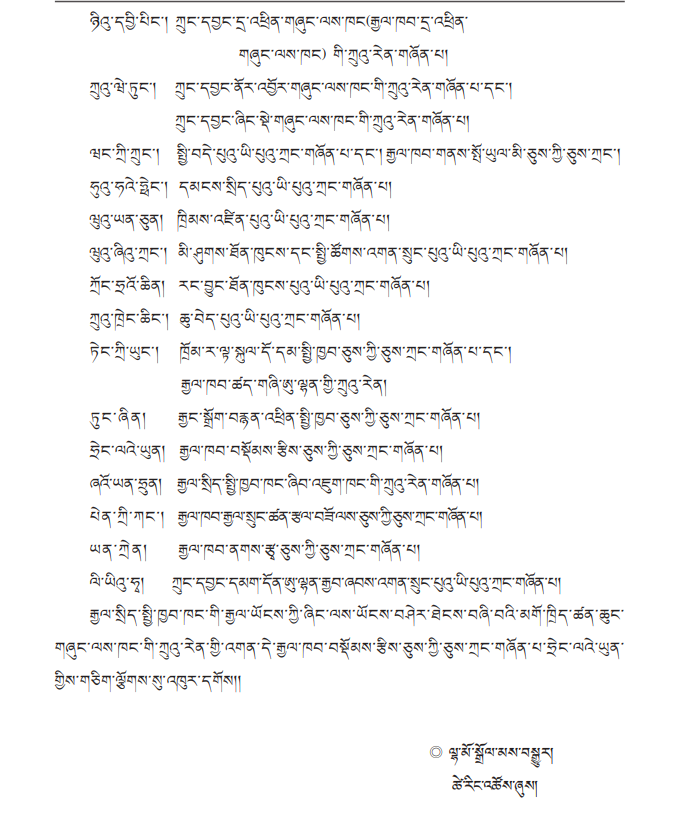 ཉིའུ་དབྱི་པིང་། ཀྲུང་དབྱང་དྲ་འཕྲིན་གཞུང་ལས་ཁང(རྒྱལ་ཁབ་དྲ་འཕྲིན་
གཞུང་ལས་ཁང) གི་ཀྲུའུ་རེན་གཞོན་པ།
ཀྲུའུ་ཝེ་ཏུང་། ཀྲུང་དབྱང་ནོར་འབྱོར་གཞུང་ལས་ཁང་གི་ཀྲུའུ་རེན་གཞོན་པ་དང་།
ཀྲུང་དབྱང་ཞིང་སྡེ་གཞུང་ལས་ཁང་གི་ཀྲུའུ་རེན་གཞོན་པ།
ཝང་ཀྲི་ཀྲུང་། སྤྱི་བདེ་པུའུ་ཡི་པུའུ་ཀྲང་གཞོན་པ་དང་། རྒྱལ་ཁབ་གནས་སྤོ་ཡུལ་མི་ཅུས་ཀྱི་ཅུས་ཀྲང་།
ཧུའུ་ཧའེ་ཧྥེང་། དམངས་སྲིད་པུའུ་ཡི་པུའུ་ཀྲང་གཞོན་པ།
ཝུའུ་ཡན་ཅུན། ཁྲིམས་འཛིན་པུའུ་ཡི་པུའུ་ཀྲང་གཞོན་པ།
ཝུའུ་ཞིའུ་ཀྲང་། མི་ཤུགས་ཐོན་ཁུངས་དང་སྤྱི་ཚོགས་འགན་སྲུང་པུའུ་ཡི་པུའུ་ཀྲང་གཞོན་པ།
ཀྲོང་ཧྲའོ་ཆིན། རང་བྱུང་ཐོན་ཁུངས་པུའུ་ཡི་པུའུ་ཀྲང་གཞོན་པ།
ཀྲུའུ་ཁྲེང་ཆིང་། ཆུ་བེད་པུའུ་ཡི་པུའུ་ཀྲང་གཞོན་པ།
ཏེང་ཀྲི་ཡུང་། ཁྲོམ་ར་ལྟ་སྐུལ་དོ་དམ་སྤྱི་ཁྱབ་ཅུས་ཀྱི་ཅུས་ཀྲང་གཞོན་པ་དང་།
རྒྱལ་ཁབ་ཚད་གཞི་ཨུ་ལྷན་གྱི་ཀྲུའུ་རེན།
ཏུང་ཞིན། རྒྱང་སྒྲོག་བརྙན་འཕྲིན་སྤྱི་ཁྱབ་ཅུས་ཀྱི་ཅུས་ཀྲང་གཞོན་པ།
ཧྲེང་ལའེ་ཡུན། རྒྱལ་ཁབ་བསྡོམས་རྩིས་ཅུས་ཀྱི་ཅུས་ཀྲང་གཞོན་པ།
ཞའོ་ཡན་ཧྲུན། རྒྱལ་སྲིད་སྤྱི་ཁྱབ་ཁང་ཞིབ་འཇུག་ཁང་གི་ཀྲུའུ་རེན་གཞོན་པ།
པེན་ཀྲི་ཀང་། རྒྱལ་ཁབ་རྒྱལ་སྲུང་ཚན་རྩལ་བཟོ་ལས་ཅུས་ཀྱི་ཅུས་ཀྲང་གཞོན་པ།
ཡན་ཀྲེན། རྒྱལ་ཁབ་ནགས་རྩྭ་ཅུས་ཀྱི་ཅུས་ཀྲང་གཞོན་པ།
ལི་ཡིའུ་ཧྭ། ཀྲུང་དབྱང་དམག་དོན་ཨུ་ལྷན་རྒྱབ་ཞབས་འགན་སྲུང་པུའུ་ཡི་པུའུ་ཀྲང་གཞོན་པ།
རྒྱལ་སྲིད་སྤྱི་ཁྱབ་ཁང་གི་རྒྱལ་ཡོངས་ཀྱི་ཞིང་ལས་ཡོངས་བཤེར་ཐེངས་བཞི་བའི་མགོ་ཁྲིད་ཚན་ཆུང་
གཞུང་ལས་ཁང་གི་ཀྲུའུ་རེན་གྱི་འགན་དེ་རྒྱལ་ཁབ་བསྡོམས་རྩིས་ཅུས་ཀྱི་ཅུས་ཀྲང་གཞོན་པ་ཧྲེང་ལའེ་ཡུན་
གྱིས་གཅིག་ལྕོགས་སུ་འཁུར་དགོས།།
◎ ལྷ་མོ་སྒྲོལ་མས་བསྒྱུར།
ཚེ་རིང་འཚོས་ཞུས།